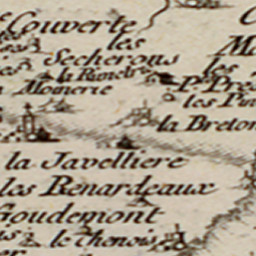 Couverte
les
Secherons
la Rimetre
les
la Momerie
les Pin
la Breton
la Javelliere
les Renardeaux
Goudemont
le Chenois